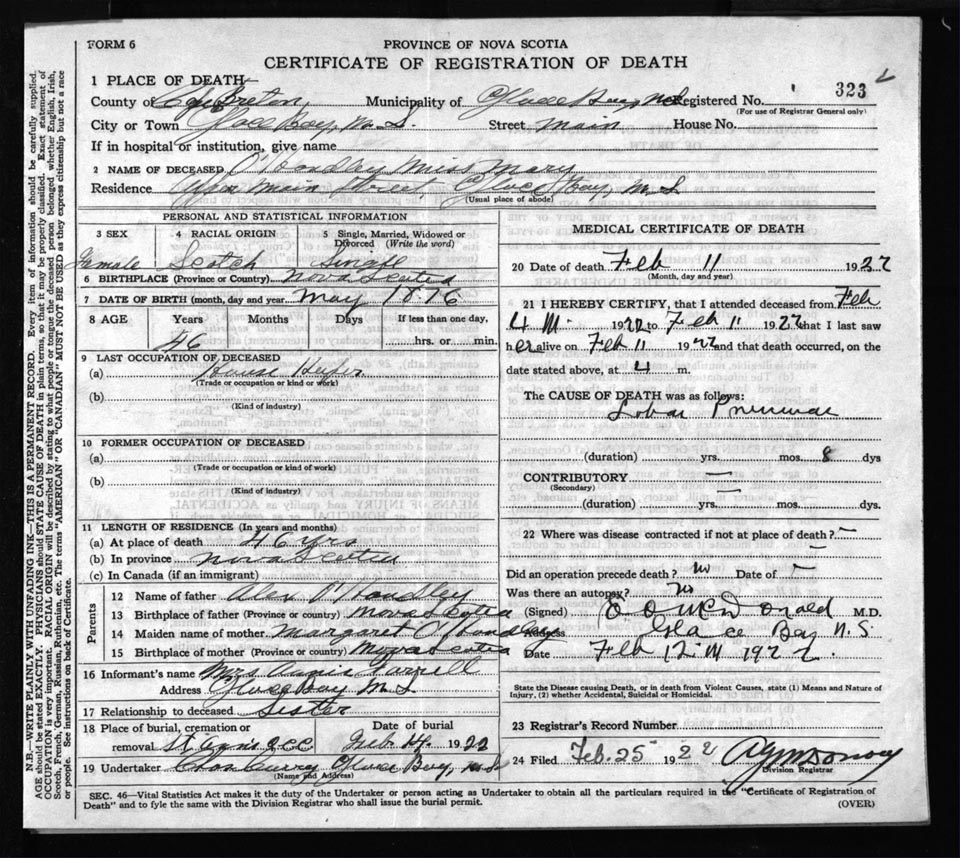 FORM 6
PROVINCE OF NOVA SCOTIA
CERTIFICATE OF REGISTRATION OF DEATH
1 PLACE OF DEATH
323
County of Cape Breton, Municipality of Glace Bay, N.S. Registered No.
(For use of Registrar General only)
City or Town Glace Bay, N.S. Street Main House No.
If in hospital or institution, give name
2 NAME OF DECEASED O'Handley Miss Mary
Residence Upper Main Street, Glace Bay, N.S.
(Usual place of abode)
PERSONAL AND STATISTICAL INFORMATION
3 SEX 4 RACIAL ORIGIN 5 Single, Married, Widowed or Divorced (Write the word)
Female Scotch Single
6 BIRTHPLACE (Province or Country) Nova Scotia
7 DATE OF BIRTH (month, day and year) May 1876
8 AGE Years Months Days If less than one day,
46 hrs. or min.
9 LAST OCCUPATION OF DECEASED
(a) House Keeper
(Trade or occupation or kind or work)
(b)
(Kind of industry)
10 FORMER OCCUPATION OF DECEASED
(a)
(Trade or occupation or kind or work)
(b)
(Kind of industry)
11 LENGTH OF RESIDENCE (In years and months)
(a) At place of death 46 yrs
(b) In province Nova Scotia
(c) In Canada (if an immigrant)
Parents
12 Name of father Alex O'Handley
13 Birthplace of father (Province or country) Nova Scotia
14 Maiden name of mother Margaret O'Handley
15 Birthplace of mother (Province or country) Nova Scotia
16 Informant's name Mrs Annie Farrell
Address Glace Bay N.S.
17 Relationship to deceased Sister
18 Place of burial, cremation or Date of burial
removal St Anns Feb 14, 1922
19 Undertaker Glace Bay, N.S.
(Name and Address)
MEDICAL CERTIFICATE OF DEATH
20 Date of death Feb 11 1922
(Month, day and year)
21 I HEREBY CERTIFY, that I attended deceased from Feb
4 1922 to Feb 11 1922 that I last saw
her alive on Feb 11 1922 and that death occurred, on the
date stated above, at 4 m.
The CAUSE OF DEATH was as follows:
Lobar Pneumonia
(duration) yrs. mos. 8 dys
CONTRIBUTORY —
(Secondary)
(duration) yrs. mos. dys.
22 Where was disease contracted if not at place of death? —
Did an operation precede death? No Date of —
Was there an autopsy? No
(Signed) McDonald M.D.
Address Glace Bay N.S
Date Feb 12 1922.
State the Disease causing Death, or in death from Violent Causes, state (1) Means and Nature of
Injury, (2) whether Accidental, Suicidal or Homicidal.
23 Registrar's Record Number
24 Filed Feb. 25 1922
Division Registrar
SEC. 46—Vital Statistics Act makes it the duty of the Undertaker or person acting as Undertaker to obtain all the particulars required in the "Certificate of Registration of
Death" and to fyle the same with the Division Registrar who shall issue the burial permit.
(OVER)
N.B.—WRITE PLAINLY WITH UNFADING INK—THIS IS A PERMANENT RECORD. Every item of information should be carefully supplied.
AGE should be stated EXACTLY. PHYSICIANS should STATE CAUSE OF DEATH in plain terms, so that it may be properly classified. Exact statement of
OCCUPATION is very important. RACIAL ORIGIN will be described by stating to what people or tongue the deceased person belonged whether English, Irish,
Scotch, French, German, Russian, Ruthenian, etc. The terms "AMERICAN" OR "CANADIAN" MUST NOT BE USED as they express citizenship but not a race
or people. See instructions on back of Certificate.